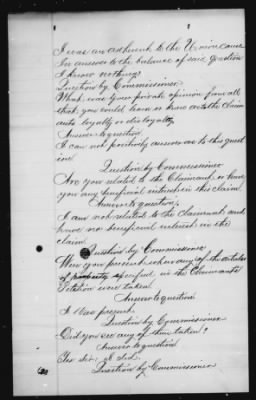 I was an adherent to the Union cause
In answer to the balance of said question
I know nothing.
Question by Commissioner
What was your private opinion from all
that you could learn or know as to the Claim
ants loyalty or disloyalty
Answer to question
I can not positively answer as to this quest
ion.
Question by Commissioner
Are you related to the Claimant, or have
you any beneficial interest in this claim.
Answer to question;
I am not related to the claimant and
have no beneficial interest in the
claim
Question by Commissioner
Were you present when any of the articles
of property specified in the Claimants
Petition were taken
Answer to question
I Was present
Question by Commissioner
Did you see any of them taken?
Answer to question
Yes sir; I did.
Question by Commissioner